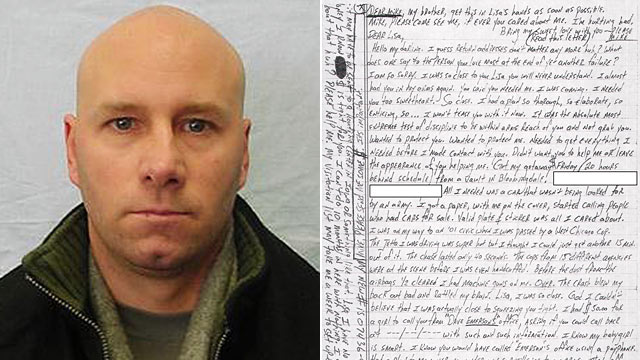 DEAR MIKE, my brother, get this in Lisa's hands as soon as possible.
Mike, please come see me, if ever you cared about me. I'm hurting bad.
Bring my sweet love with you - please
(Read this letter) Mike
DEAR LISA,
Hello my darling. I guess return addresses don't matter any more huh? What
does one say to the person you love most at the end of yet another failure?
I am so sorry. I was so close to you Lisa you will never understand. I almost
had you in my arms again. You said you needed me. I was coming. I needed
you too sweetheart. So close. I had a plan so thorough, so elaborate, so
enticing, so... I won't tease you with it now. It was the absolute most
extreme test of discipline to be within arms reach of you and not grab you.
Wanted to protect you. Wanted to protect me. Needed to get everything I
needed before I made contact with you. Didn't want you to help me or leave
the appearance of you helping me. Got my getaway Friday/20 hours
behind schedule from a vault in Bloomingdale.
All I needed was a car that wasn't being looked for
by an army. I got a paper, with me on the cover, started calling people
who had cars for sale. Valid plate & sticker was all I cared about.
I was on my way to an '01 civic when I was passed by a West Chicago cop.
The Jetta I was driving was super hot but I thought I could just get another 15 min
out of it. The chase lasted only 40 seconds. The cops from 15 different agencies
were at the scene before I was even handcuffed. Before the dust from the
airbags 1/2 cleared I had machine guns on me. Over. The crash blew my
back out bad and rattled my brain. Lisa, I was so close. God I couldn't
believe that I was actually close to squeezing you tight. I had
a girl to call you from "Dave Emerson's" office, asking if you could call back
with such and such information. I know my babygirl
is smart. I knew you would have called Emerson's office using a payphone.